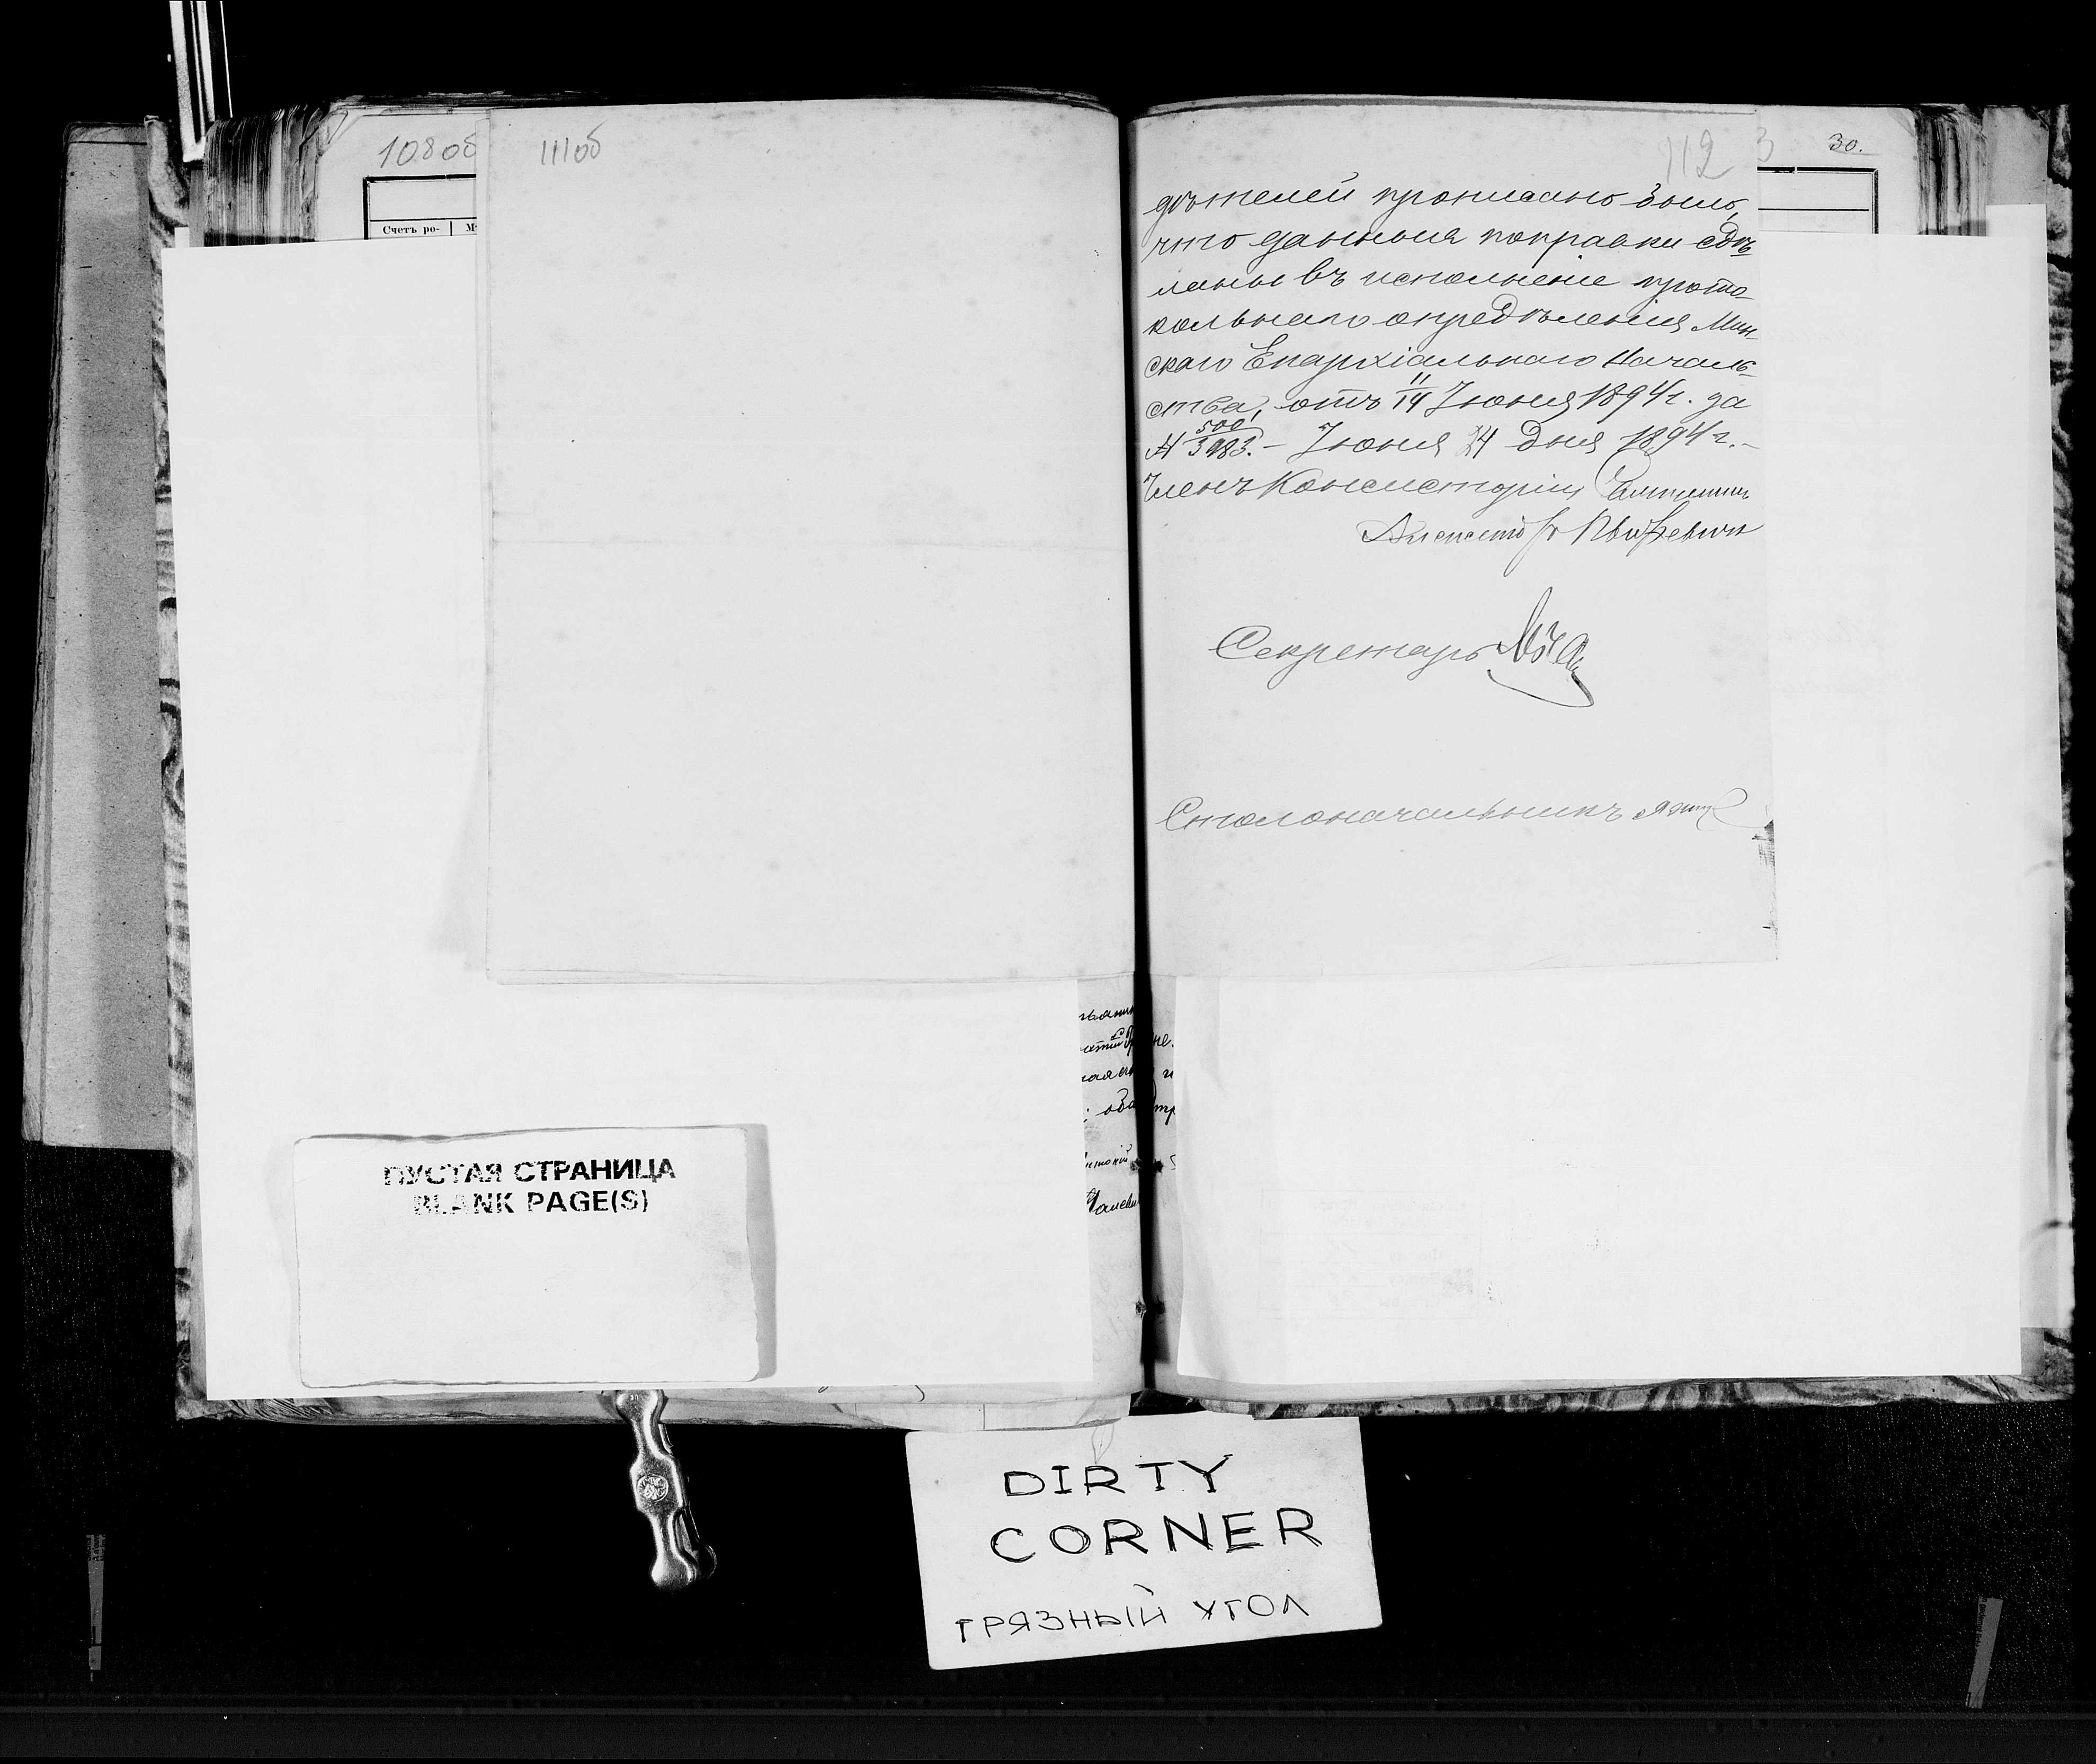 108об
111об
Счетъ ро-
112
3
30.
дѣтелей прописано было,
что данныя поправки сдѣ
ланы въ исполненіе прото-
кольнаго опредѣленія Мин-
скаго Епархіальнаго Началь-
ства, отъ 11/14 Іюня 1894 г. за
№ 500/3983. – Іюня 24 дня 1894 г. –
Членъ Консисторіи
Секретарь
Столоначальникъ
ПУСТАЯ СТРАНИЦА
BLANK PAGE(S)
DIRTY
CORNER
ГРЯЗНЫЙ УГОЛ